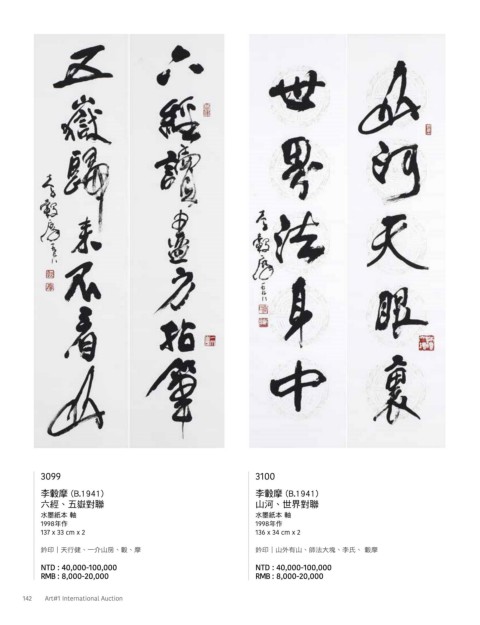 六經讀盡方拈筆
五嶽歸來不看山
李轂摩
山河天眼裏
世界法身中
李轂摩
3099
李轂摩 (B.1941)
六經、五嶽對聯
水墨紙本 軸
1998年作
137 x 33 cm x 2
鈐印│天行健、一介山房、轂、摩
NTD : 40,000-100,000
RMB : 8,000-20,000
3100
李轂摩 (B.1941)
山河、世界對聯
水墨紙本 軸
1998年作
136 x 34 cm x 2
鈐印│山外有山、師法大塊、李氏、轂摩
NTD : 40,000-100,000
RMB : 8,000-20,000
142 Art#1 International Auction